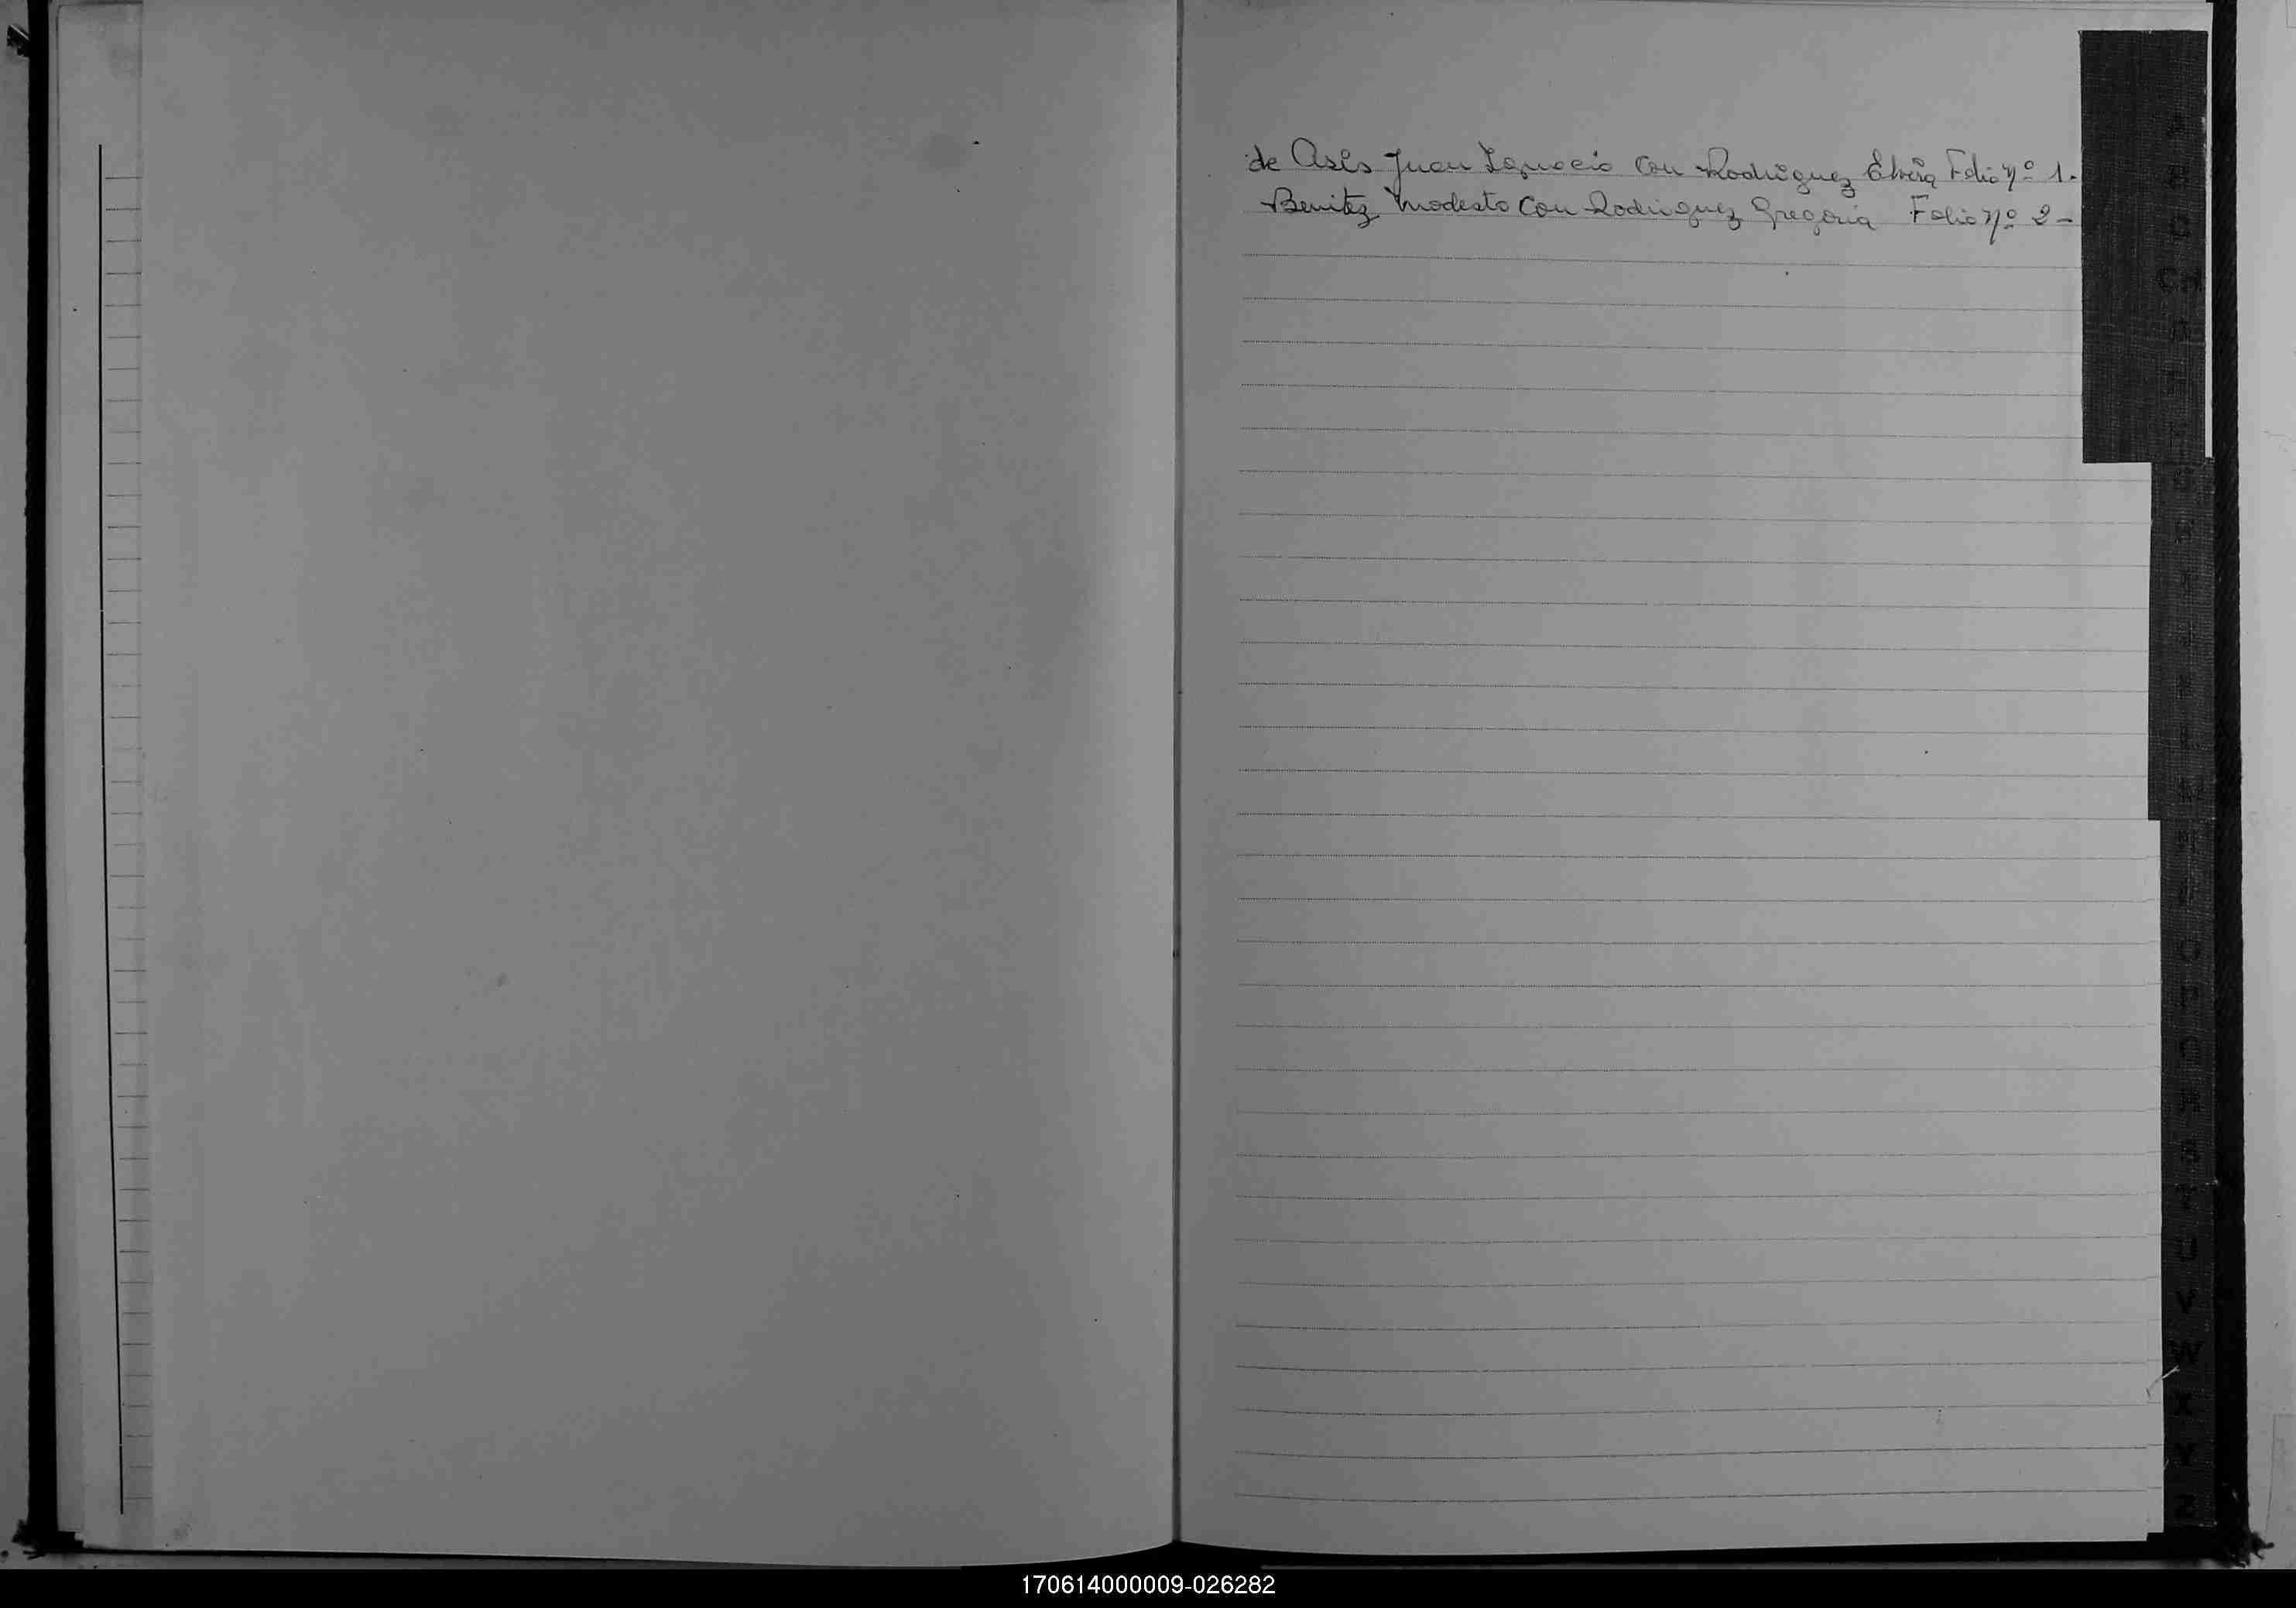 de Asis Juan Ignacio con Rodriguez Elvira Folio nº 1.
Benitez Modesto con Rodriguez Gregoria Folio nº 2-
C
CH
U
V
W
X
Y
Z
170614000009-026282